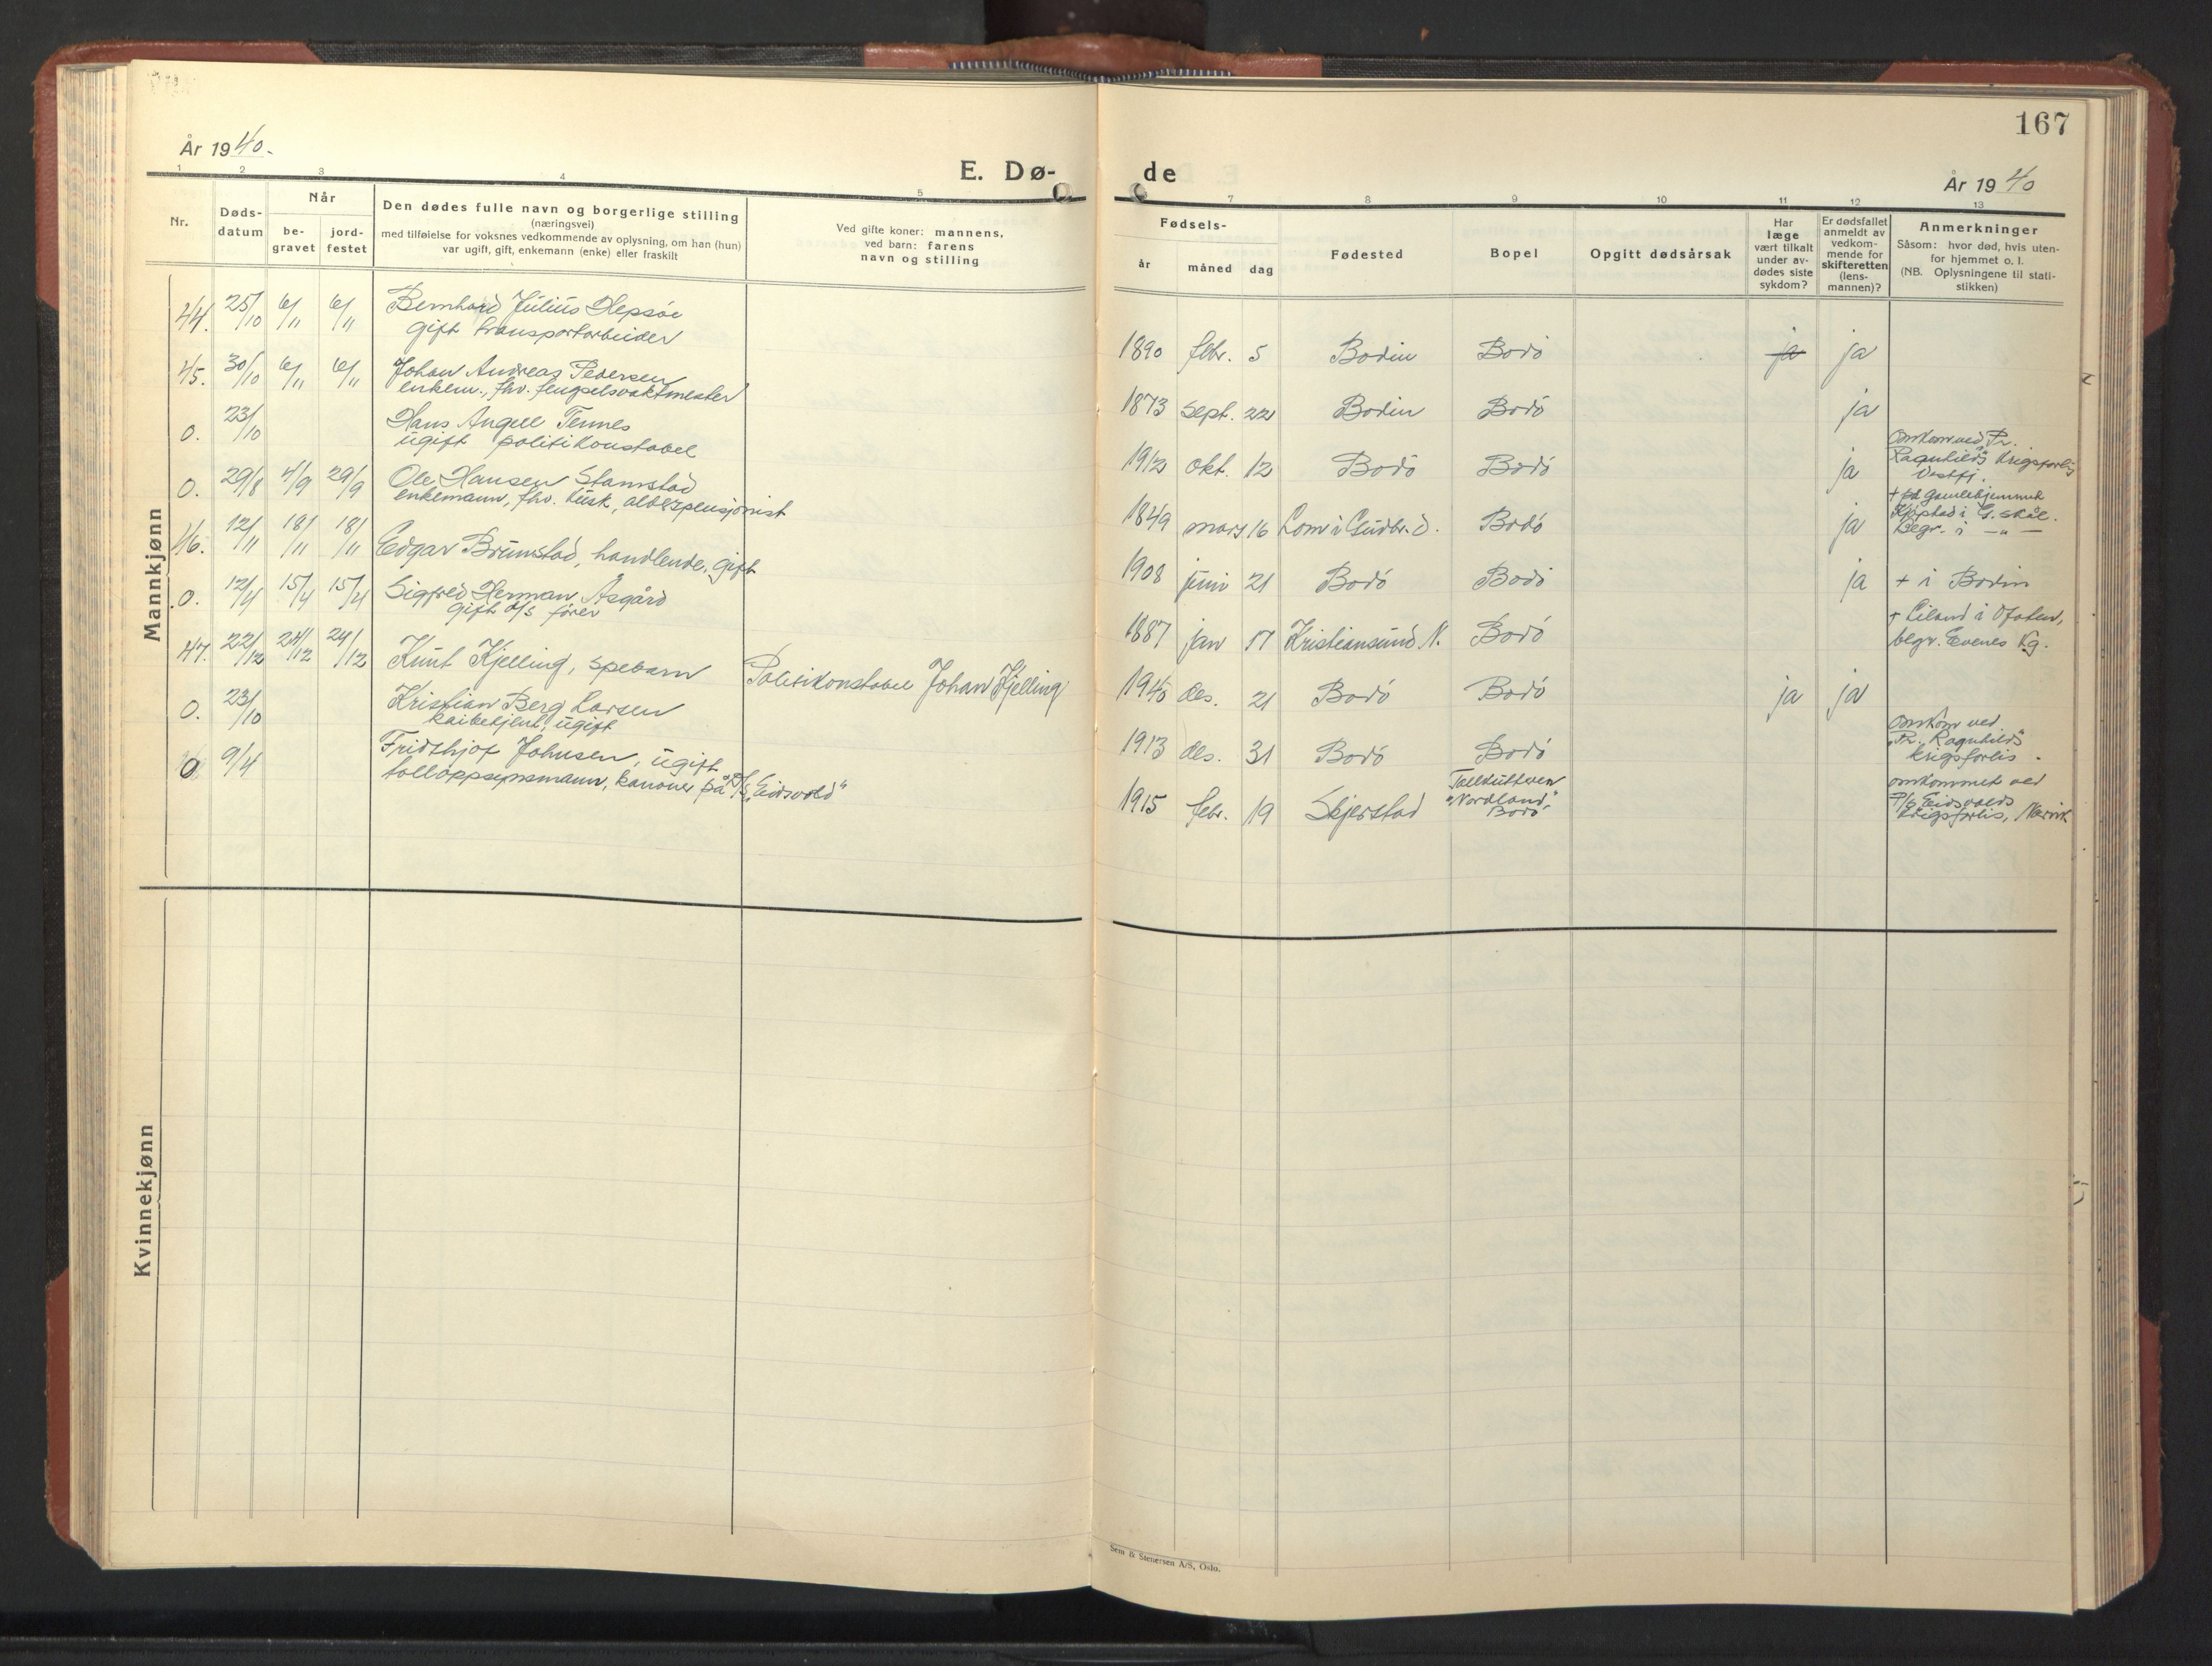 167
År 1940.
E. Dø-
de
År 1940
1 2 3 4 5
7 8 9 10 11 12 13
Nr.
Døds-
datum
Når
be-
gravet
jord-
festet
Den dødes fulle navn og borgerlige stilling
(næringsvei)
med tilføielse for voksnes vedkommende av oplysning, om han (hun)
var ugift, gift, enkemann (enke) eller fraskilt
Ved gifte koner: mannens,
ved barn: farens
navn og stilling
Fødsels-
år måned dag
Fødested
Bopel
Opgitt dødsårsak
Har
læge
vært tilkalt
under av-
dødes siste
sykdom?
Er dødsfallet
anmeldt av
vedkom-
mende for
skifteretten
(lens-
mannen)?
Anmerkninger
Såsom: hvor død, hvis uten-
for hjemmet o. l.
(NB. Oplysningene til stati-
stikken)
Mannkjønn
44. 25/10 6/11 6/11 Bernhard Julius Hepsøe
gift transportarbeider
1890 febr. 5 Bodin Bodö ja ja
45. 30/10 6/11 6/11 Johan Andreas Pedersen
enkem., fhv. fengselsvaktmester
1873 sept. 22 Bodin Bodö ja
0. 23/10 Hans Angell Tennes
ugift politikonstabel
1912 okt. 12 Bodö Bodö ja
omkom ved Pr.
Ragnhilds krigsforlis
Vestfj.
0. 29/8 4/9 29/9 Ole Hansen Stamstad
enkemann, fhv. kusk, alderspensjonist
1849 mars 16 Lom i Gudbr.d. Bodö ja
+ på gamlehjemmet
Kjöpstad i G.skål.
Begr. i — " —
46. 12/11 18/11 18/11 Edgar Brumstad, handlende, gift
1908 juni 21 Bodö Bodö ja + i Bodin
0. 12/4 15/4 15/4 Sigfred Herman Åsgård
gift d/s fører
1887 jan 17 Kristiansund N. Bodö
+ Liland i Ofoten,
begr. Evenes Kg.
47. 22/12 24/12 24/12 Knut Kjelling, spebarn Politikonstabel Johan Kjelling
1940 des. 21 Bodö Bodö ja ja
0. 23/10 Kristian Berg Larsen
kaibetjent, ugift
1913 des. 31 Bodö Bodö
omkom ved
"Pr. Ragnhilds"
krigsforlis.
0 9/4 Fridthjof Johnsen, ugift
tolloppsynsmann, kanoner på P/S "Eidsvold"
1915 febr. 19 Skjerstad Tollkutteren
"Nordland,"
Bodö
omkommet ved
P/S Eidsvolds
krigsforlis, Narvik
Kvinnekjønn
Sem & Stenersen A/S, Oslo.